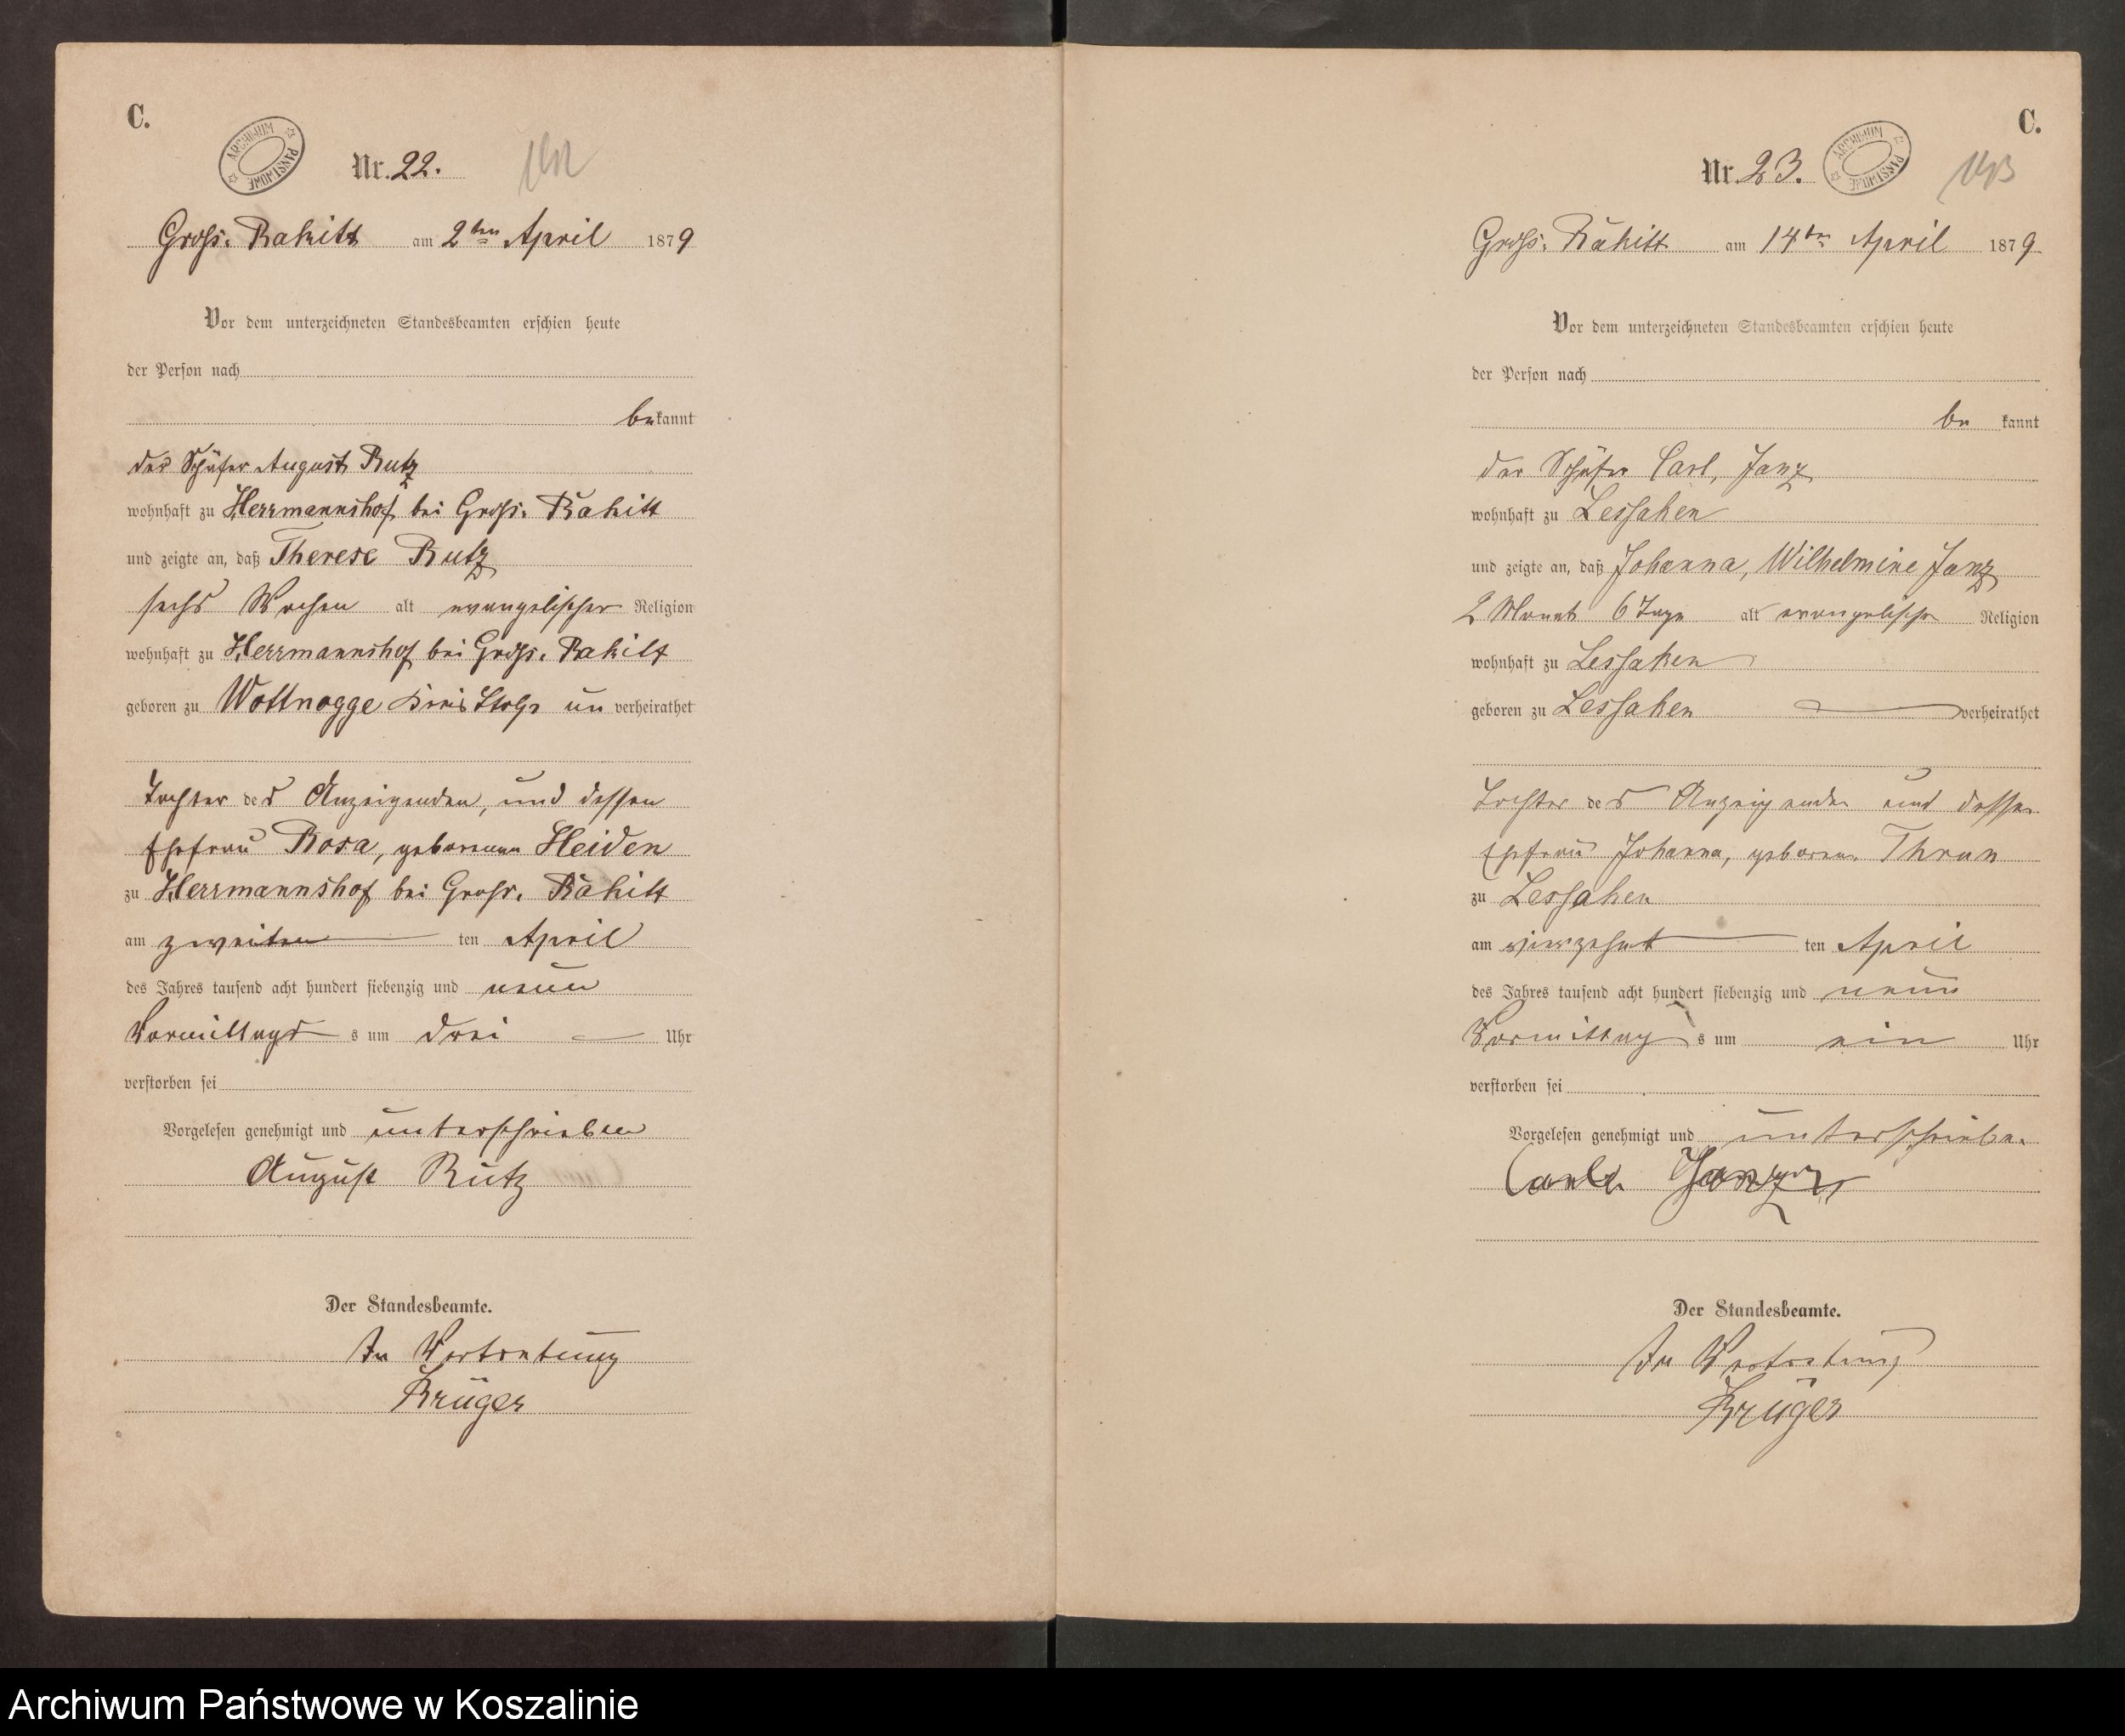 C.
ARCHIWUM PAŃSTWOWE
Nr. 22.
Gross. Rakitt am 2ten April 1879
Vor dem unterzeichneten Standesbeamten erschien heute
der Person nach
bekannt
der Schäfer August Rutz
wohnhaft zu Herrmannshof bei Gross. Rakitt
und zeigte an, daß Therese Rutz
sechs Wochen alt evangelischer Religion
wohnhaft zu Herrmannshof bei Gross. Rakitt
geboren zu Wottnogge Kreis Stolp un verheirathet
Tochter des Anzeigenden, und dessen
Ehefrau Rosa, geborenen Heiden
zu Herrmannshof bei Gross. Rakitt
am zweiten ten April
des Jahres tausend acht hundert siebenzig und neun
Vormittags s um drei Uhr
verstorben sei
Vorgelesen genehmigt und unterschrieben
August Rutz
Der Standesbeamte.
In Vertretung
Krüger
C.
Nr. 23.
ARCHIWUM PAŃSTWOWE
Gross. Rakitt am 14ten April 1879
Vor dem unterzeichneten Standesbeamten erschien heute
der Person nach
be kannt
der Schäfer Carl, Janz
wohnhaft zu Lessaken
und zeigte an, daß Johanna, Wilhelmine Janz
2 Monat 6 Tage alt evangelischer Religion
wohnhaft zu Lessaken
geboren zu Lessaken verheirathet
Tochter des Anzeigenden und dessen
Ehefrau Johanna, geborene Thrun
zu Lessaken
am vierzehnt ten April
des Jahres tausend acht hundert siebenzig und neun
Vormittag s um ein Uhr
verstorben sei
Vorgelesen genehmigt und unterschrieben
Carl Janz
Der Standesbeamte.
In Vertretung
Krüger
Archiwum Państwowe w Koszalinie